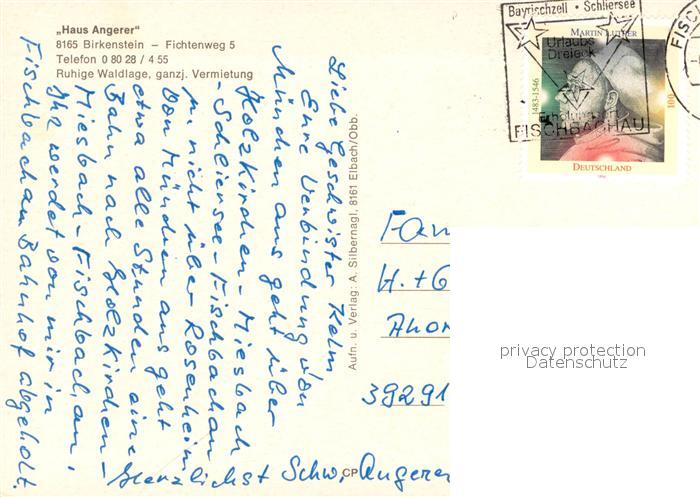 „Haus Angerer"
8165 Birkenstein – Fichtenweg 5
Telefon 0 80 28 / 4 55
Ruhige Waldlage, ganzj. Vermietung
Liebe Geschwister Kelm
Eure Verbindung von
München aus geht über
Holzkirchen - Miesbach
- Schliersee - Fischbachau
u. nicht über Rosenheim
Von München aus geht
etwa alle Stunden eine
Bahn nach Holzkirchen -
Miesbach - Fischbachau.
Ihr werdet von mir in
Fischbachau Bahnhof abgeholt.
Herzlichst Schw. Angerer
Aufn. u. Verlag: A. Silbernagl, 8161 Elbach/Obb.
CP
Bayrischzell • Schliersee
Urlaubs
Dreieck
FISCHBACHAU
MARTIN LUTHER
1483-1546
100
DEUTSCHLAND
FISC
Fam
H. + G
Ahor
39291
privacy protection
Datenschutz